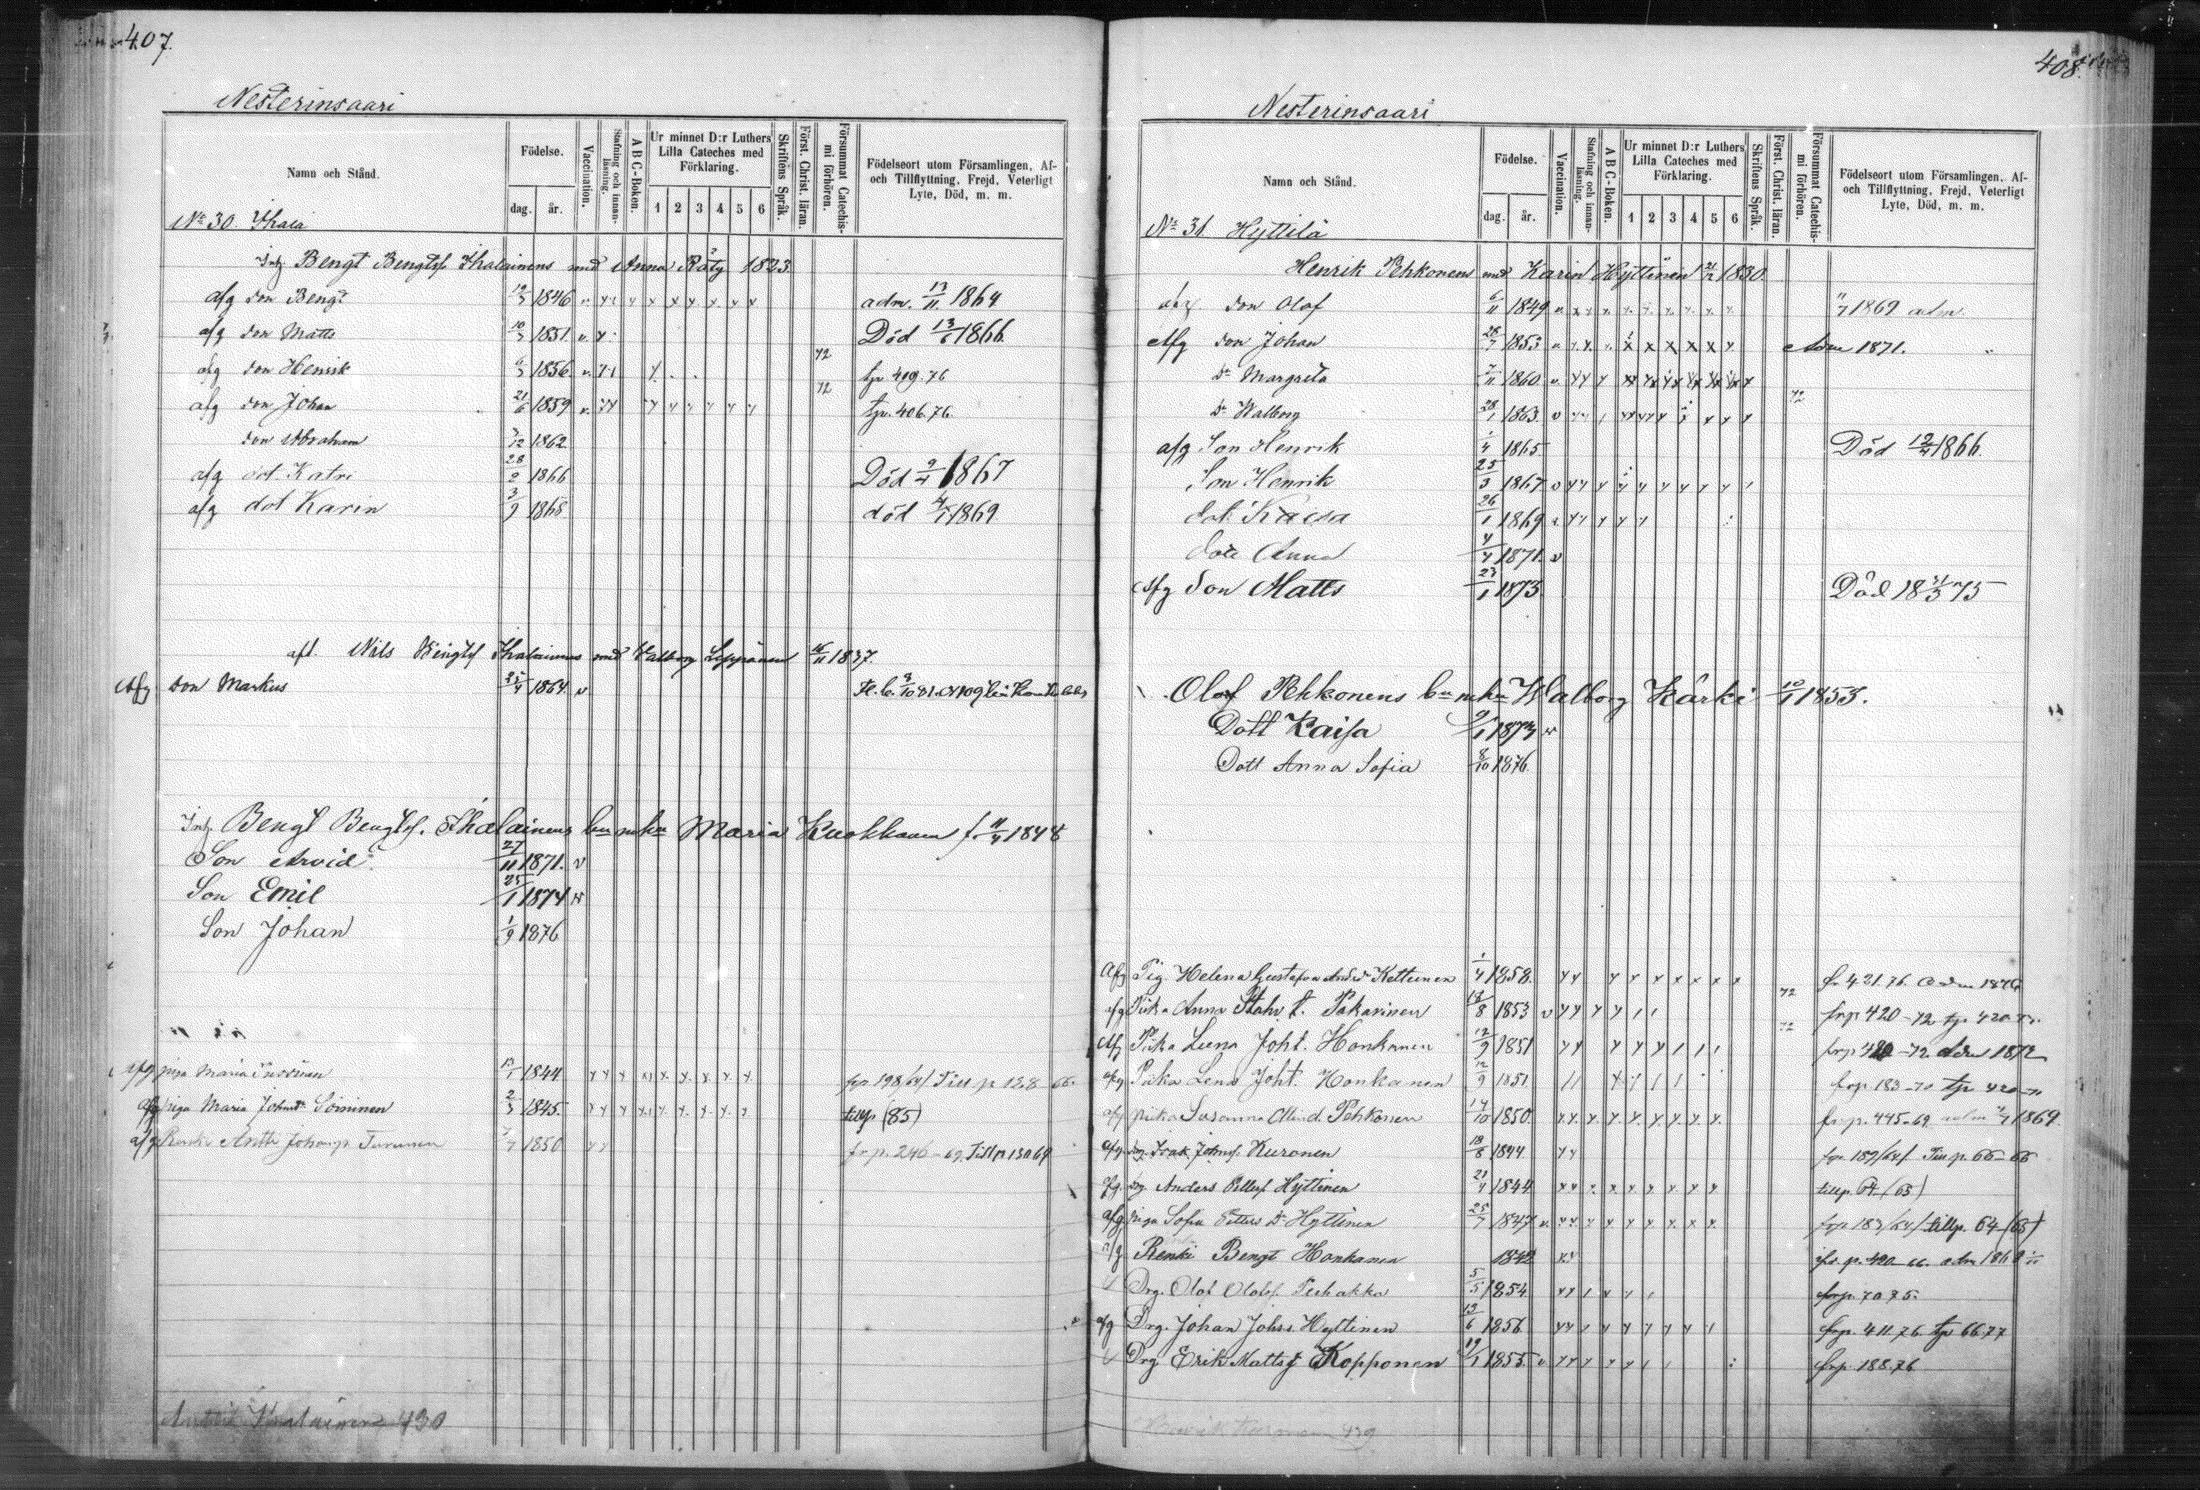 407.
Nesterinsaari
Namn och Stånd.
Födelse.
dag. år.
Vaccination.
Stafning och innanläsning.
A B C-Boken.
Ur minnet D:r Luthers Lilla Cateches med Förklaring.
1 2 3 4 5 6
Skriftens Språk.
Först. Christ. läran.
Försummat Catechismi förhören.
Födelseort utom Församlingen, Af- och Tillflyttning, Frejd, Veterligt Lyte, Död, m. m.
No 30. Ihala
Inh. Bengt Bengtss. Ihalainens med Anna Räty 1823
afg son Bengt 1846 adm. 13/11 1864
afg son Matts 10/3 1851 Död 13/6 1866
72
afg son Henrik 6/3 1856 tp 409. 76
72
afg son Johan 21/6 1859 tp. 406. 76.
son Abraham 3/12 1862
afg dot. Katri 28/2 1866 Död 9/4 1867
afg dot Karin 3/9 1868 död 4/1 1869
aft. Nils Bengtss Ihalainens med Walborg Leppänen 1837.
Afg son Markus 25/4 1864
Inh. Bengt Bengtss. Ihalainens hu Maria Kuokkanen f. 11/4 1848
Son Arvid 27/11 1871. v
Son Emil 25/1 1874
Son Johan 1/9 1876
afg piga Maria 1844 frp 198/64/ Till p 138 66.
afg piga Maria Johnsd. Soininen 2/3 1845 tillp (85)
afg Renki Antti Johansp. Turunen 1850 fr p. 246-69. Till p 130 69
Antti Ihalainen 430
408.
Nesterinsaari
Namn och Stånd.
Födelse.
dag. år.
Vaccination.
Stafning och innanläsning.
A B C-Boken.
Ur minnet D:r Luthers Lilla Cateches med Förklaring.
1 2 3 4 5 6
Skriftens Språk.
Först. Christ. läran.
Försummat Catechismi förhören.
Födelseort utom Församlingen, Af- och Tillflyttning, Frejd, Veterligt Lyte, Död, m. m.
No 31 Hyttilä
Henrik Pehkonens med Karin Hyttinen 21/12 1830
afg son Olof 6/11 1849 1869 adm.
Afg son Johan 28/7 1853 Adm 1871.
Dr Margreta 7/11 1860
72
Dr Walborg 28/1 1863
afg Son Henrik 1/4 1865 Död 12/4 1866
Son Henrik 25/3 1867
dot. Kaisa 26/1 1869
Dott Anna 4/4 1871. v
Afg Son Matts 23/1 1873 Död 18 31/3 75
Olof Pehkonens hu Walborg Kärki 10/1 1853.
Dott Kaisa 1873
Dott Anna Sofia 8/10 1876
Afg Pig. Helena Gustafva Kettunen 1/4 1858 fr 421. 76. Adm 1876
72
afg Piika Anna t. Pakarinen 12/8 1853 frp 420-72 tp 420
72
Afg Piika Leena Joht. Honkanen 12/9 1851 frp 420-72 Adm 1872
afg Piika Lena Joht. Honkanen 12/9 1851 frp. 183-70 tp 420-70
afg piika Susanna Pehkonen 14/10 1850 fr p. 445-69 adm 1869
afg drg Isak Johnss. Kuronen 18/8 1844 frp. 189/64/ Till p. 66-66
afg. drg. Anders Pettess. Hyttinen 21/4 1844 tillp. 64 (65)
afg piga Sofia Petters Dr Hyttinen 25/7 1847 frp 183/64/ tillp. 64 (65)
afg Renki Bengt Honkanen 1842 fr. p. 420-66. adm 1868
Drg. Olof Olofss. Tiihakka 5/5 1854 frp. 70 75.
afg Drg. Johan Johss. Hyttinen 13/6 1856 frp. 411 76 tp 66 77
Drg Erik Mattss Kopponen 19/1 1855 frp. 188. 76
Henrik Kuronen 439